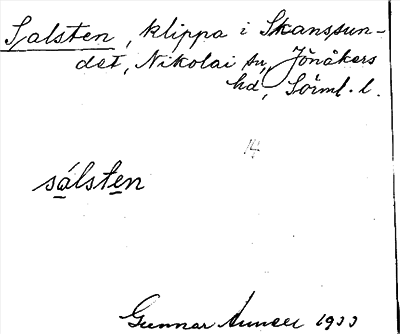 Salsten, klippa i Skanssun-
det, Nikolai sn, Jönåkers
hd, Sörml. l.
14
sálsten
Gunnar 1933